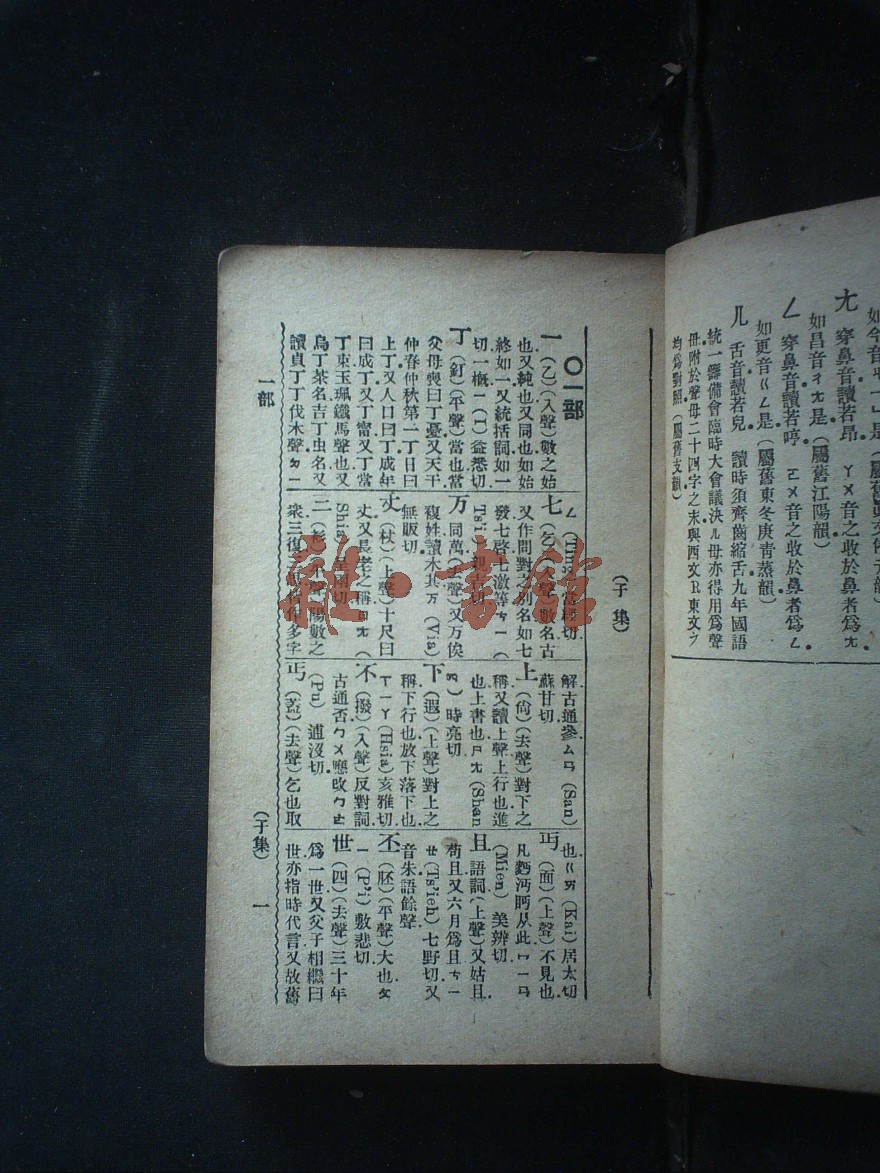 如今音ㄐㄧㄣ是(屬舊真文侵元韻)
ㄤ 穿鼻音讀若昂 ㄚㄨ音之收於鼻者爲ㄤ
如昌音ㄔㄤ是(屬舊江陽韻)
ㄥ 穿鼻音讀若哼 ㄛㄨ音之收於鼻者爲ㄥ
如更音ㄍㄥ是(屬舊東冬庚青蒸韻)
ㄦ 舌音讀若兒 讀時須齊齒縮舌九年國語
統一籌備會臨時大會議決ㄦ母亦得用爲聲
母附於聲母二十四字之末與西文R東文ラ
均爲對照(屬舊支韻)
(子集)
〇一部
一(乙)(入聲)數之始
也又純也又同也如始
終如一又統括詞如一
切一概ㄧ(I)益悉切
丁(釘)(平聲)當也當
父母喪曰丁憂又天干
仲春仲秋第一丁日曰
上丁又人口曰丁成年
曰成丁又丁甯又丁當
丁東玉珮鐵馬聲也又
烏丁茶名吉丁虫名又
讀貞丁丁伐木聲ㄉㄧ
ㄥ(Ting)當經切
七(乞)(入聲)數名古
又作問對之別名如七
發七啓七激等ㄘㄧ(
Ts'i)親吉切
万 同萬(去聲)又万俟
複姓讀木其ㄪ(Via)
無販切
丈(杖)(上聲)十尺曰
丈又長老之稱ㄕㄤ(
Shia 呈兩切
三 平聲)陽數之
衆三復三 多字
解古通參ㄙㄢ(San)
蘇甘切
上(尙)(去聲)對下之
稱又讀上聲上行也進
也上書也ㄕㄤ(Shan
g)時亮切
下(遐)(上聲)對上之
稱下行也放下落下也
ㄒㄧㄚ(Hsia)亥雅切
不(撥)(入聲)反對詞
古通否ㄅㄨ應改ㄅㄜ
(Pu)逋沒切
丐(蓋)(去聲)乞也取
也ㄍㄞ(Kai)居太切
丏(面)(上聲)不見也
凡麪沔眄从此ㄇㄧㄢ
(Mien)美辨切
且 語詞(上聲)又姑且
苟且又六月爲且ㄘㄧ
ㄝ(Ts'ieh)七野切又
音朱語餘聲
丕(胚)(平聲)大也ㄆ
ㄧ(P'i)敷悲切
世(四)(去聲)三十年
爲一世又父子相繼曰
世亦指時代言又故舊
一部
(子集)
一
雒·書館